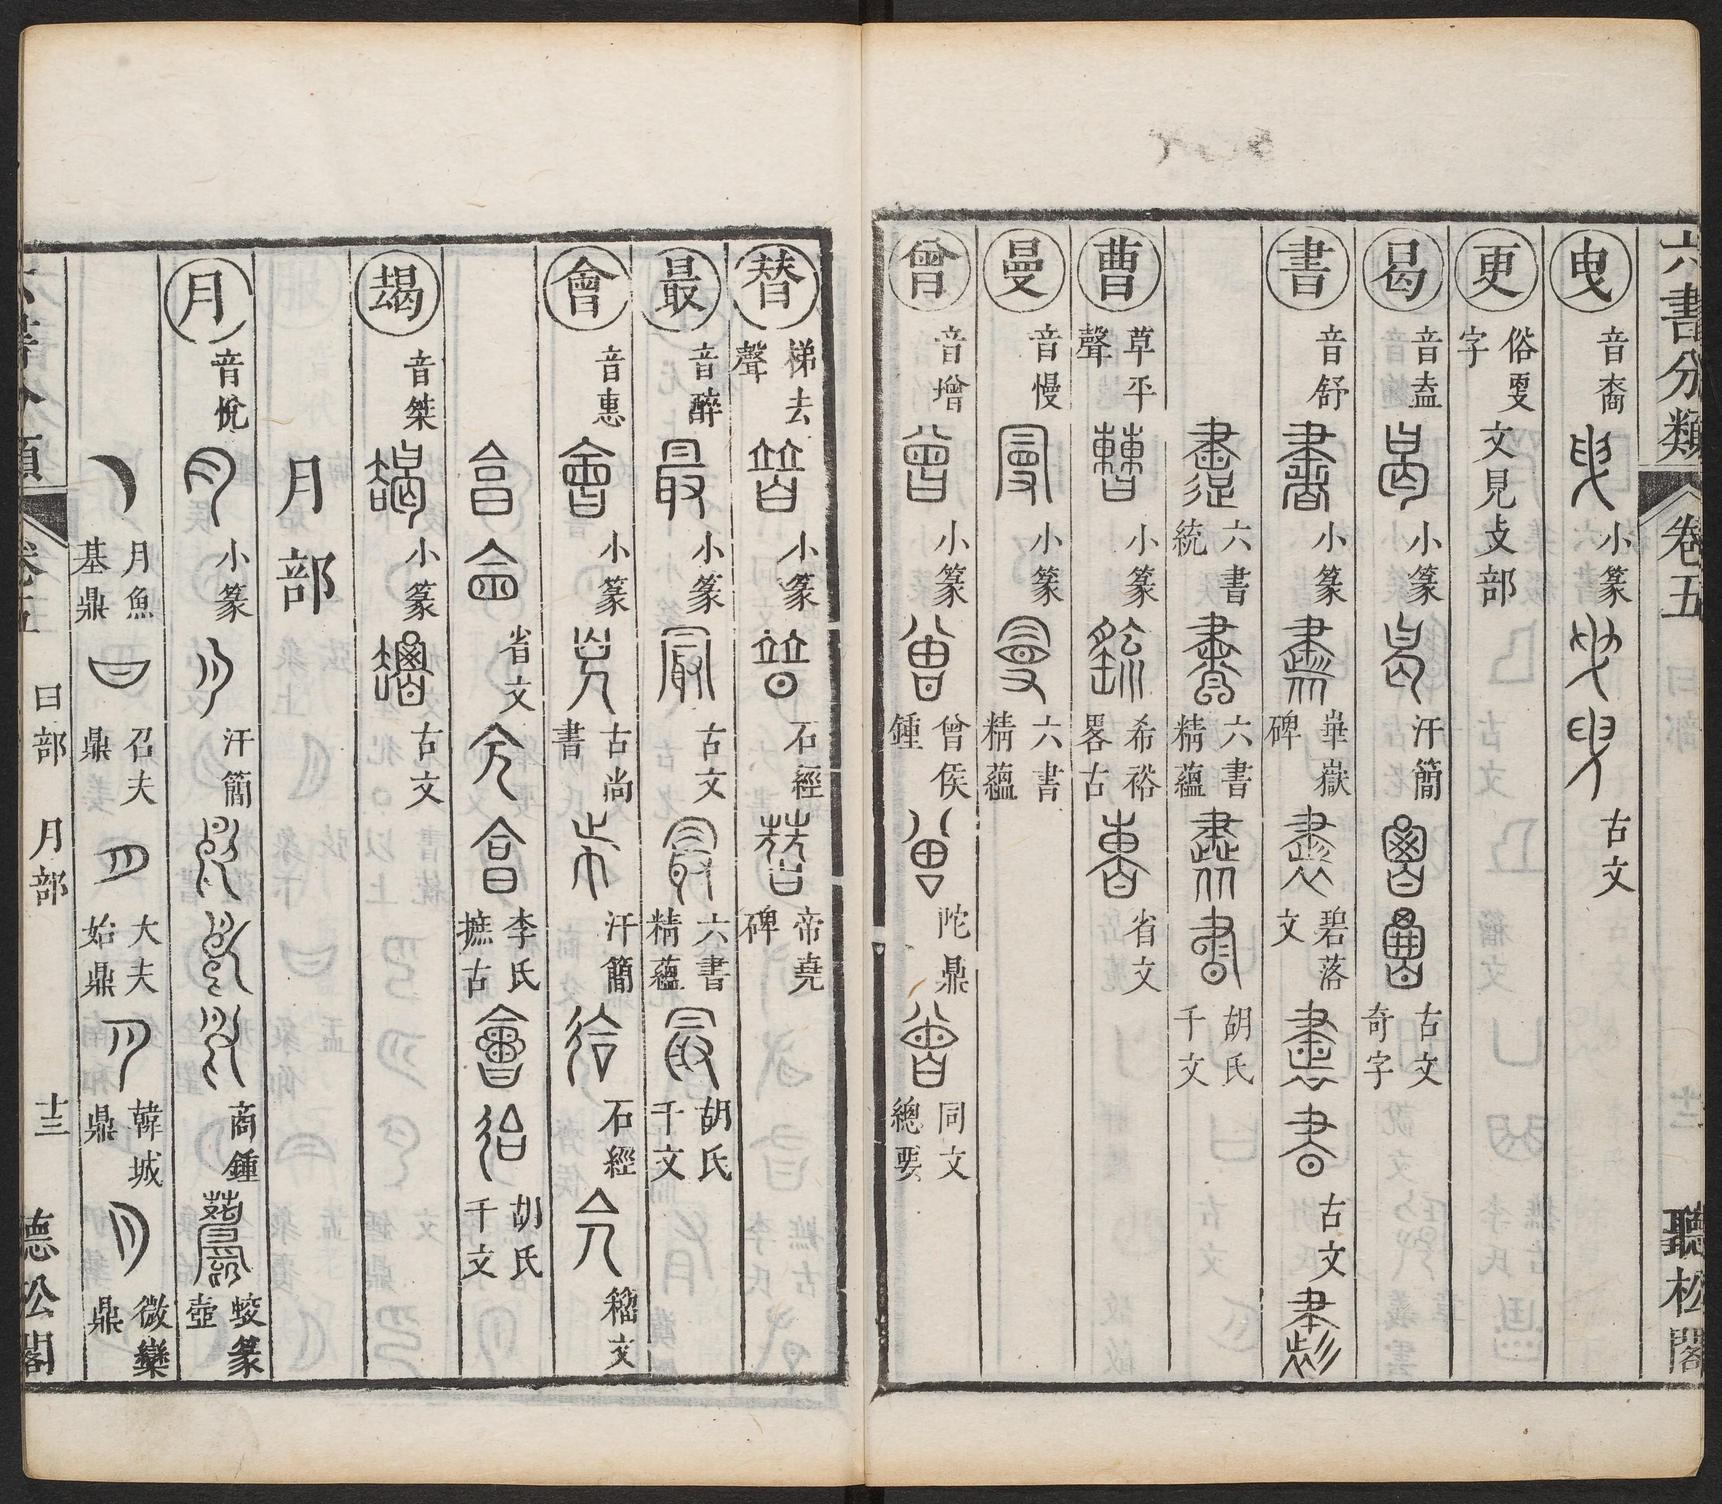 六書分類 卷五 聽松閣
曳 音裔 小篆 古文
更 俗㪅字 文見攴部
曷 音盍 小篆 汗簡 古文奇字
書 音舒 小篆 華嶽碑 碧落文 古文
六書統 六書精蘊 胡氏千文
曹 草平聲 小篆 希裕畧古 省文
曼 音慢 小篆 六書精蘊
曾 音增 小篆 曾侯鍾 陀鼎 同文總要
替 梯去聲 小篆 石經 帝堯碑
最 音醉 小篆 古文 六書精蘊 胡氏千文
會 音惠 小篆 古尚書 汗簡 石經 籀文
省文 李氏摭古 胡氏千文
朅 音桀 小篆 古文
月部
月 音悅 小篆 汗簡 商鍾 蛟篆壺
月魚基鼎 召夫鼎 大夫始鼎 韓城鼎 微欒鼎
六書分類 卷五 曰部 月部 十三 聽松閣